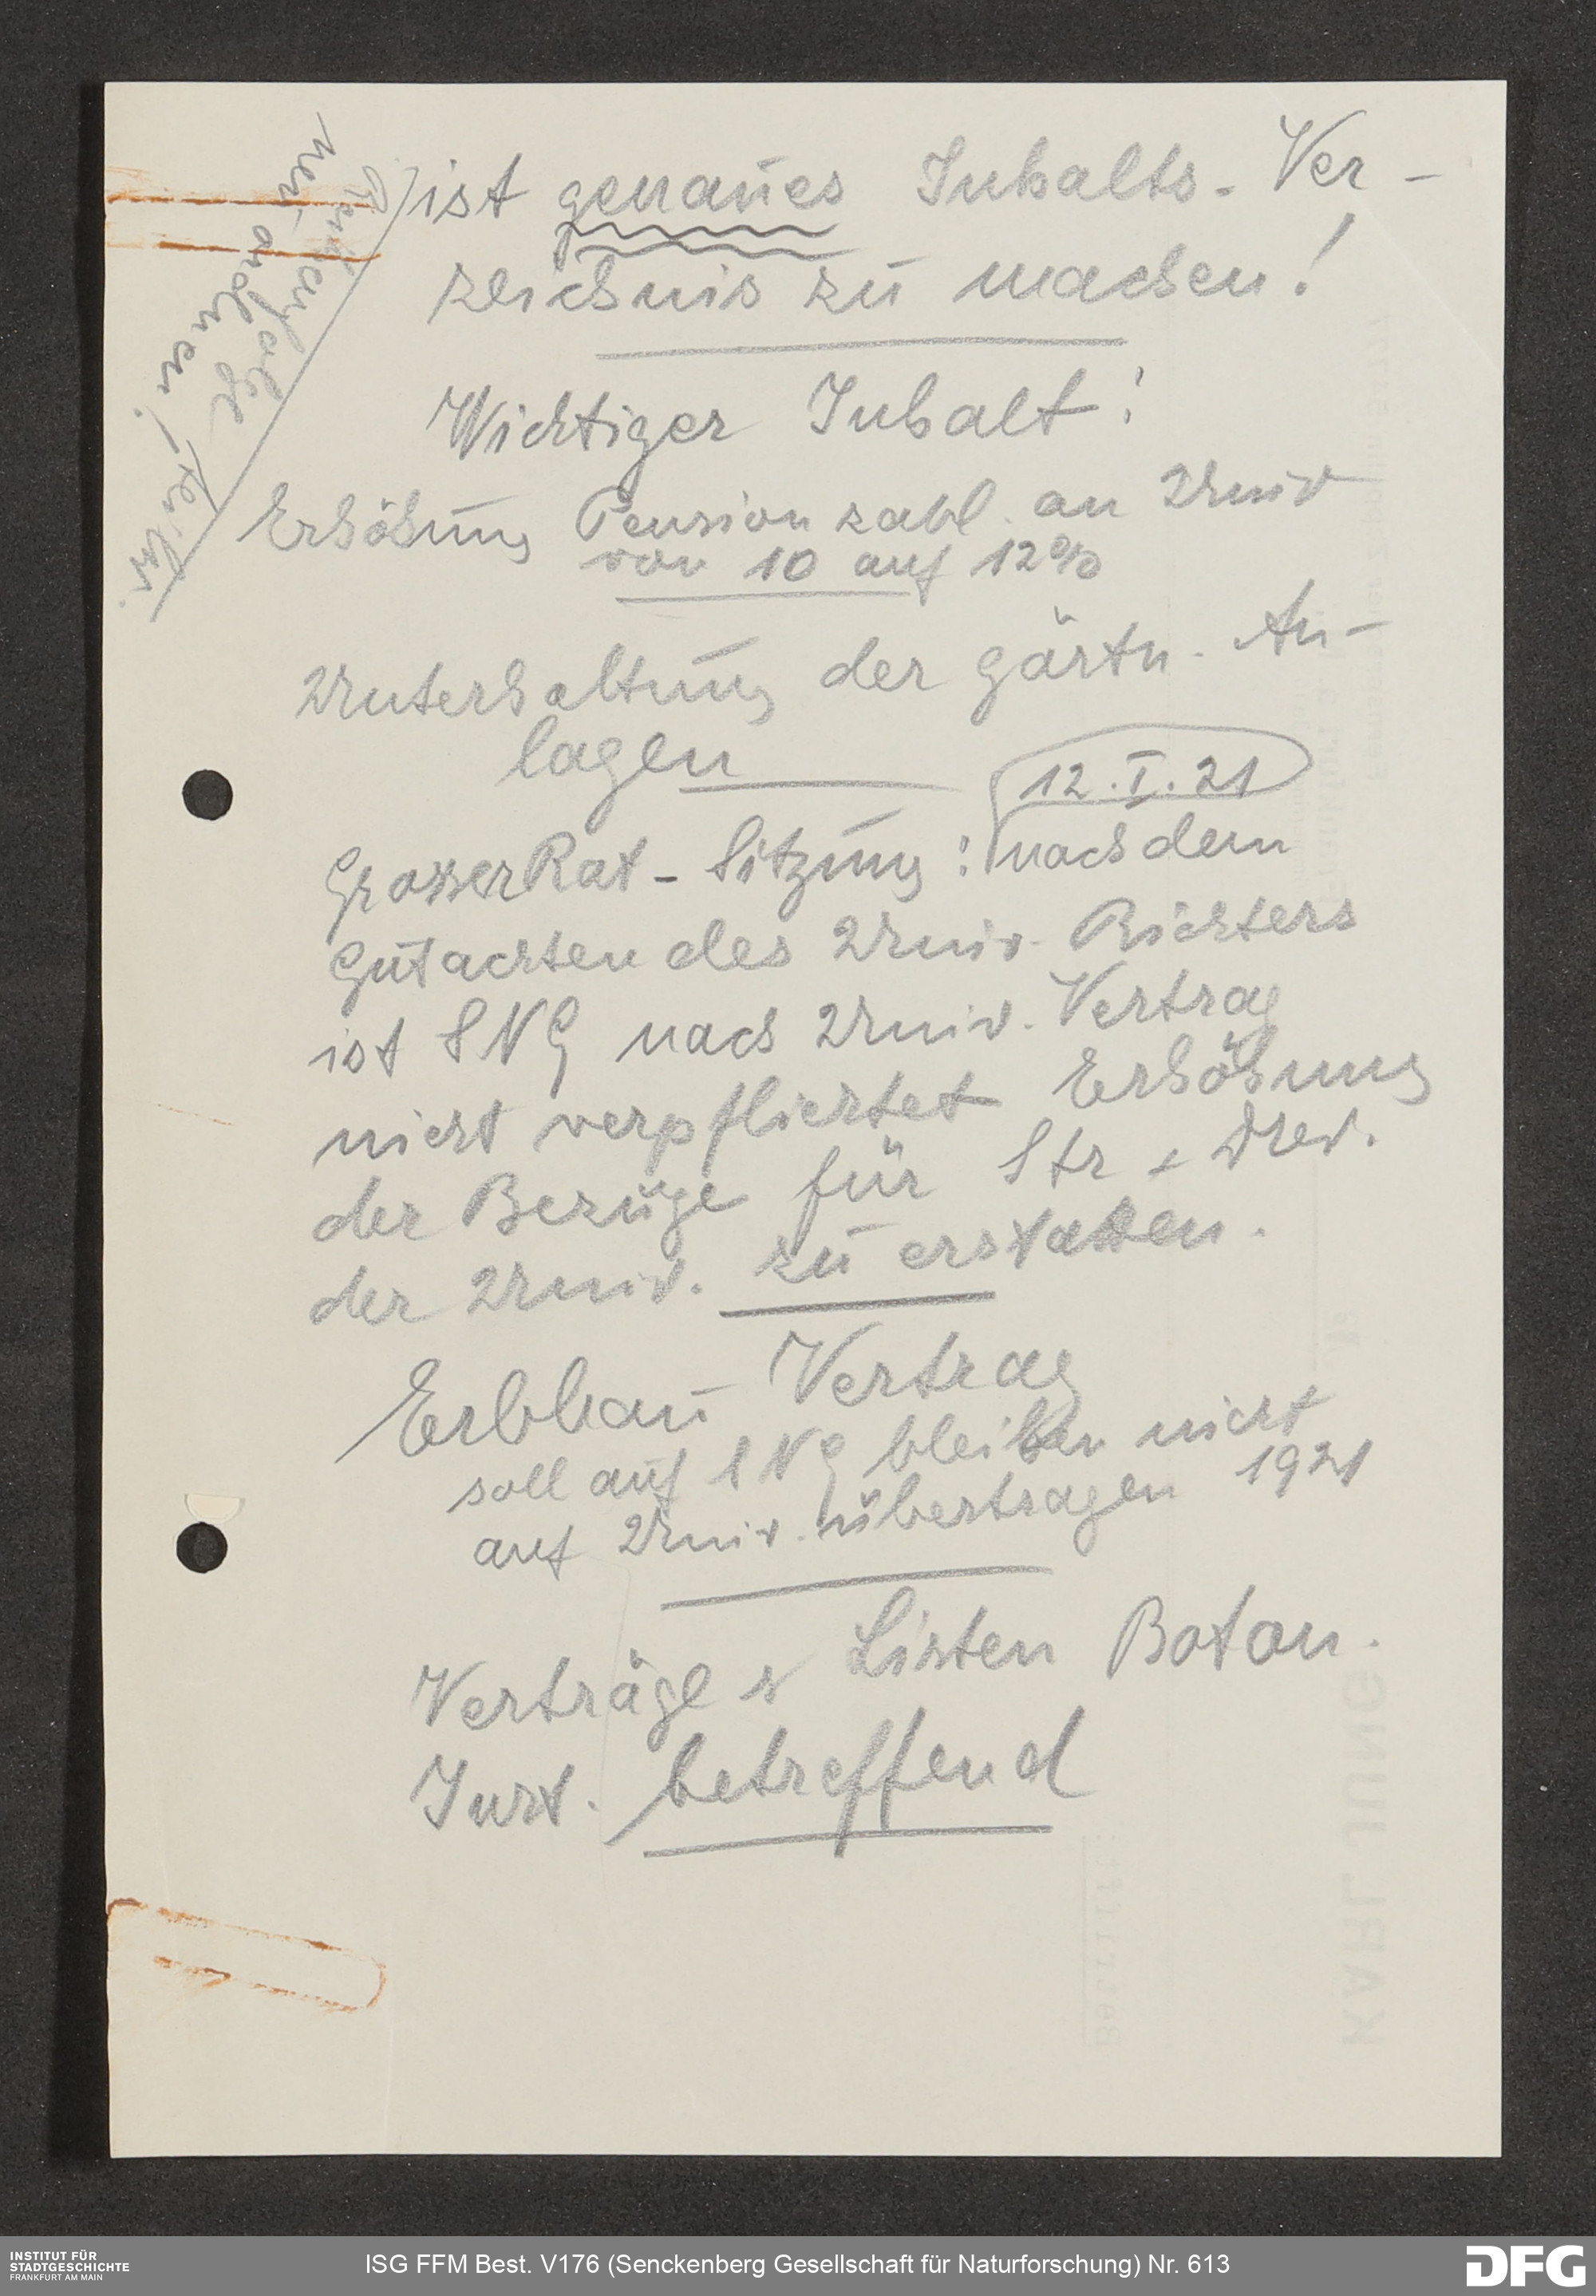 Reihenfolge
neu ordnen!
ist genaues Inhalts-Ver-
zeichnis zu machen!
Wichtiger Inhalt:
Erhöhung Pension zahl. an Univ
von 10 auf 12%
Unterhaltung der gärtn. An-
lagen
12.I.21
Grosser Rat-Sitzung: nach dem
Gutachten des Univ. Richters
ist SNG nach Univ. Vertrag
nicht verpflichtet Erhöhung
der Bezüge für Str + Drev.
der Univ. zu erstatten.
Erbbau Vertrag
soll auf SNG bleiben nicht
auf Univ. übertragen 1921
Verträge & Listen Botan.
Inst. betreffend
KARL JUNG
INSTITUT FÜR
STADTGESCHICHTE
FRANKFURT AM MAIN
ISG FFM Best. V176 (Senckenberg Gesellschaft für Naturforschung) Nr. 613
DFG